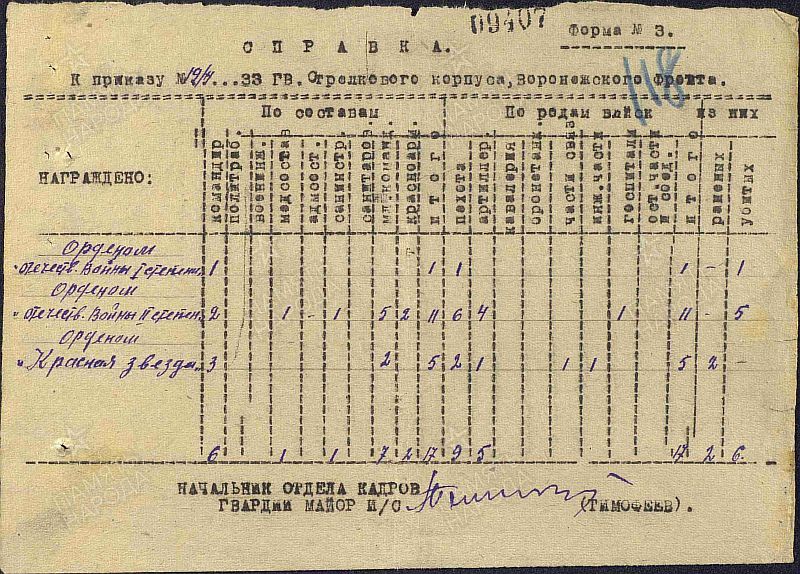 09407
Форма № 3.
СПРАВКА.
К приказу № 19/н...33 ГВ. Стрелкового корпуса, Воронежского Фронта.
118
По составам По родам войск из них
НАГРАЖДЕНО: командир политраб. военинж. медсостав адмсост. санинстр. санитаров мл.команд. красноарм. итого пехота артиллер. кавалерия бронетанк. части связ инж.части госпитали ост.части и соед. итого раненых убитых
Орденом
"Отечеств. Войны I степени" 1 1 1 1 - 1
Орденом
"Отечеств. Войны II степен." 2 1 - 1 5 2 11 6 4 1 11 - 5
Орденом
"Красная звезда" 3 2 5 2 1 1 1 5 2 -
6 1 1 7 2 17 9 5 17 2 6.
НАЧАЛЬНИК ОТДЕЛА КАДРОВ
ГВАРДИИ МАЙОР И/С (ТИМОФЕЕВ).